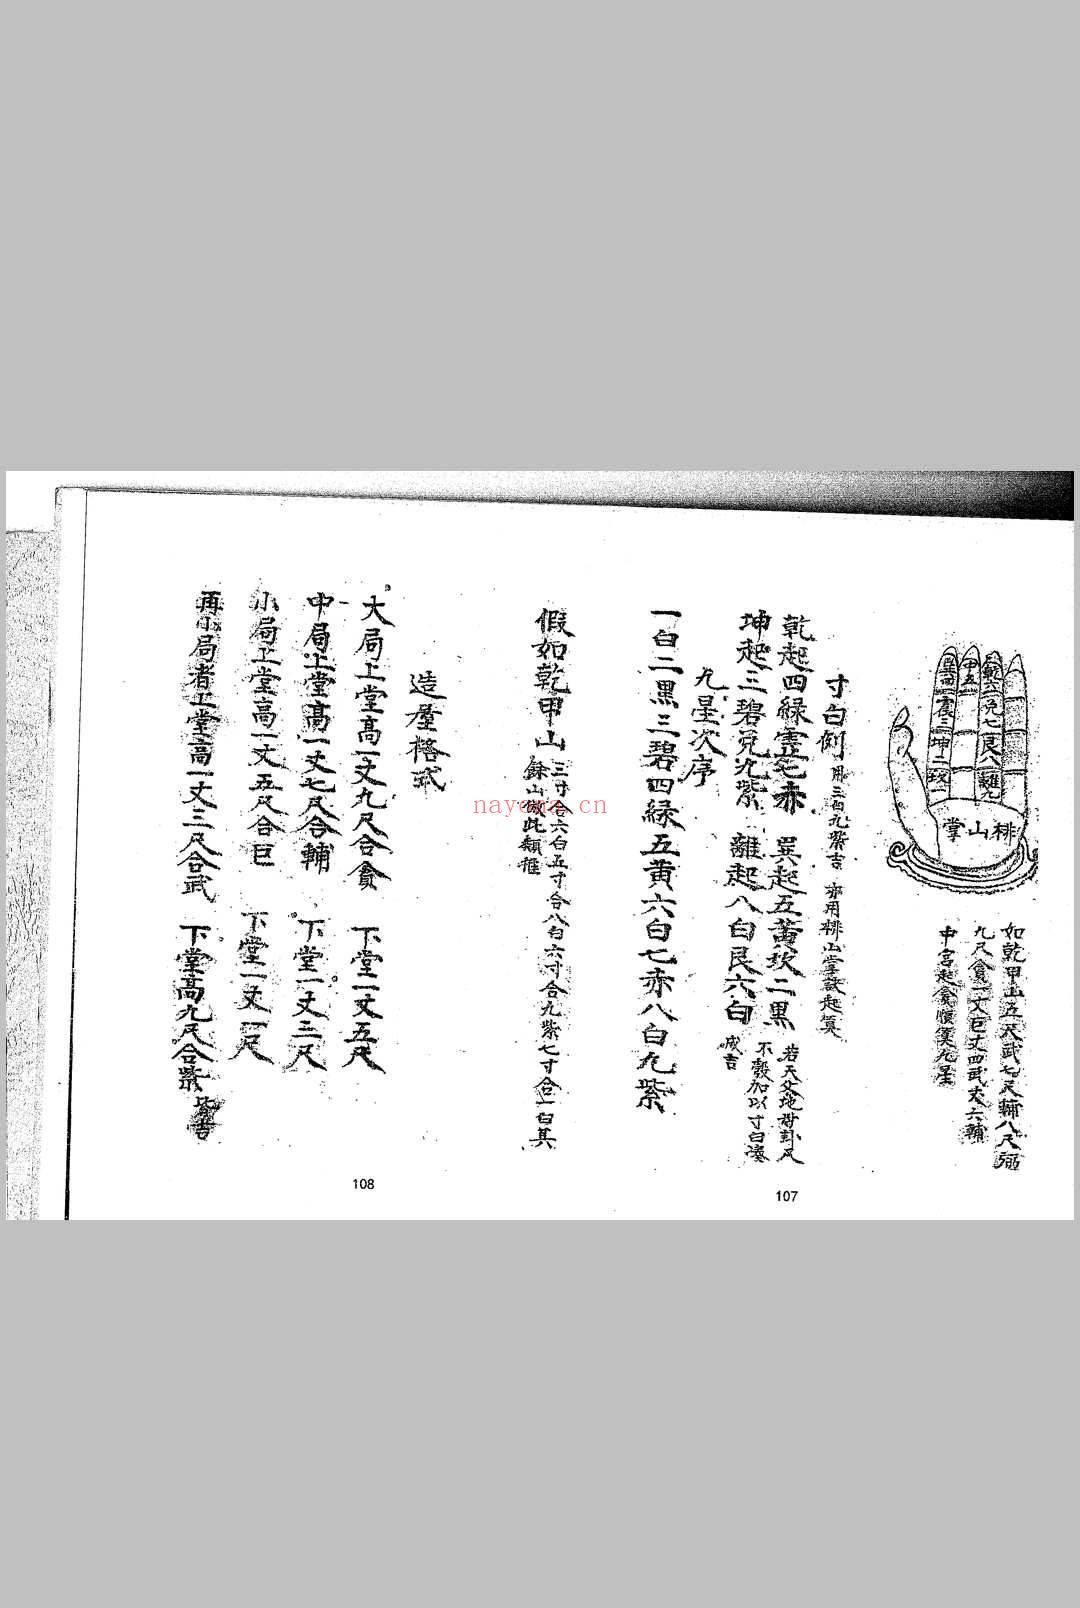 排山掌
巽四 震三 坤二 坎一
中五
乾六 兌七 艮八 離九
如乾甲山五尺武七尺輔八尺弼
九尺貪一丈巨丈四武丈六輔
中宮起貪順算九星
寸白例 用三白九紫吉 亦用排山掌訣起算
乾起四緑震七赤 巽起五黃坎二黑
坤起三碧兌九紫 離起八白艮六白
若天父地母卦尺
不敷加以寸白湊
成吉
九星次序
一白二黑三碧四緑五黄六白七赤八白九紫
107
假如乾甲山
三寸合六白五寸合八白六寸合九紫七寸合一白其
餘山倣此類推
造屋格式
大局上堂高一丈九尺合貪 下堂一丈五尺
中局上堂高一丈七尺合輔 下堂一丈三尺
小局上堂高一丈五尺合巨 下堂一丈一尺
再小局者上堂高一丈三尺合武 下堂高九尺合紫 皆吉
108
nayona.cn